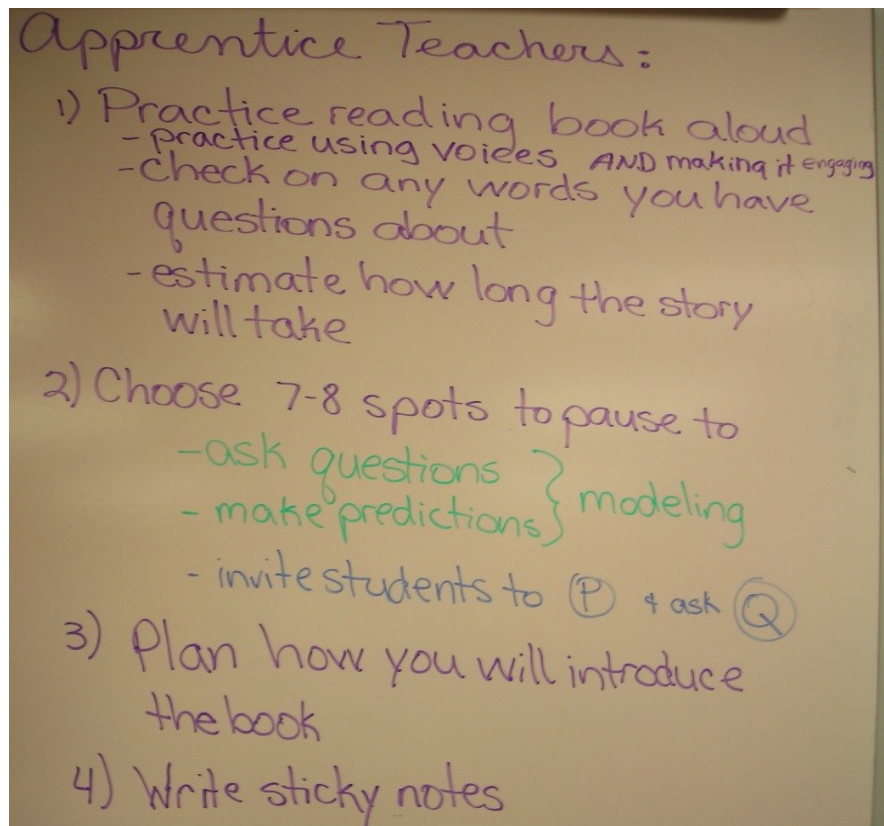 Apprentice Teachers:
1) Practice reading book aloud
- practice using voices AND making it engaging
- check on any words you have
questions about
- estimate how long the story
will take
2) Choose 7-8 spots to pause to
- ask questions
- make predictions } modeling
- invite students to P & ask Q
3) Plan how you will introduce
the book
4) Write sticky notes